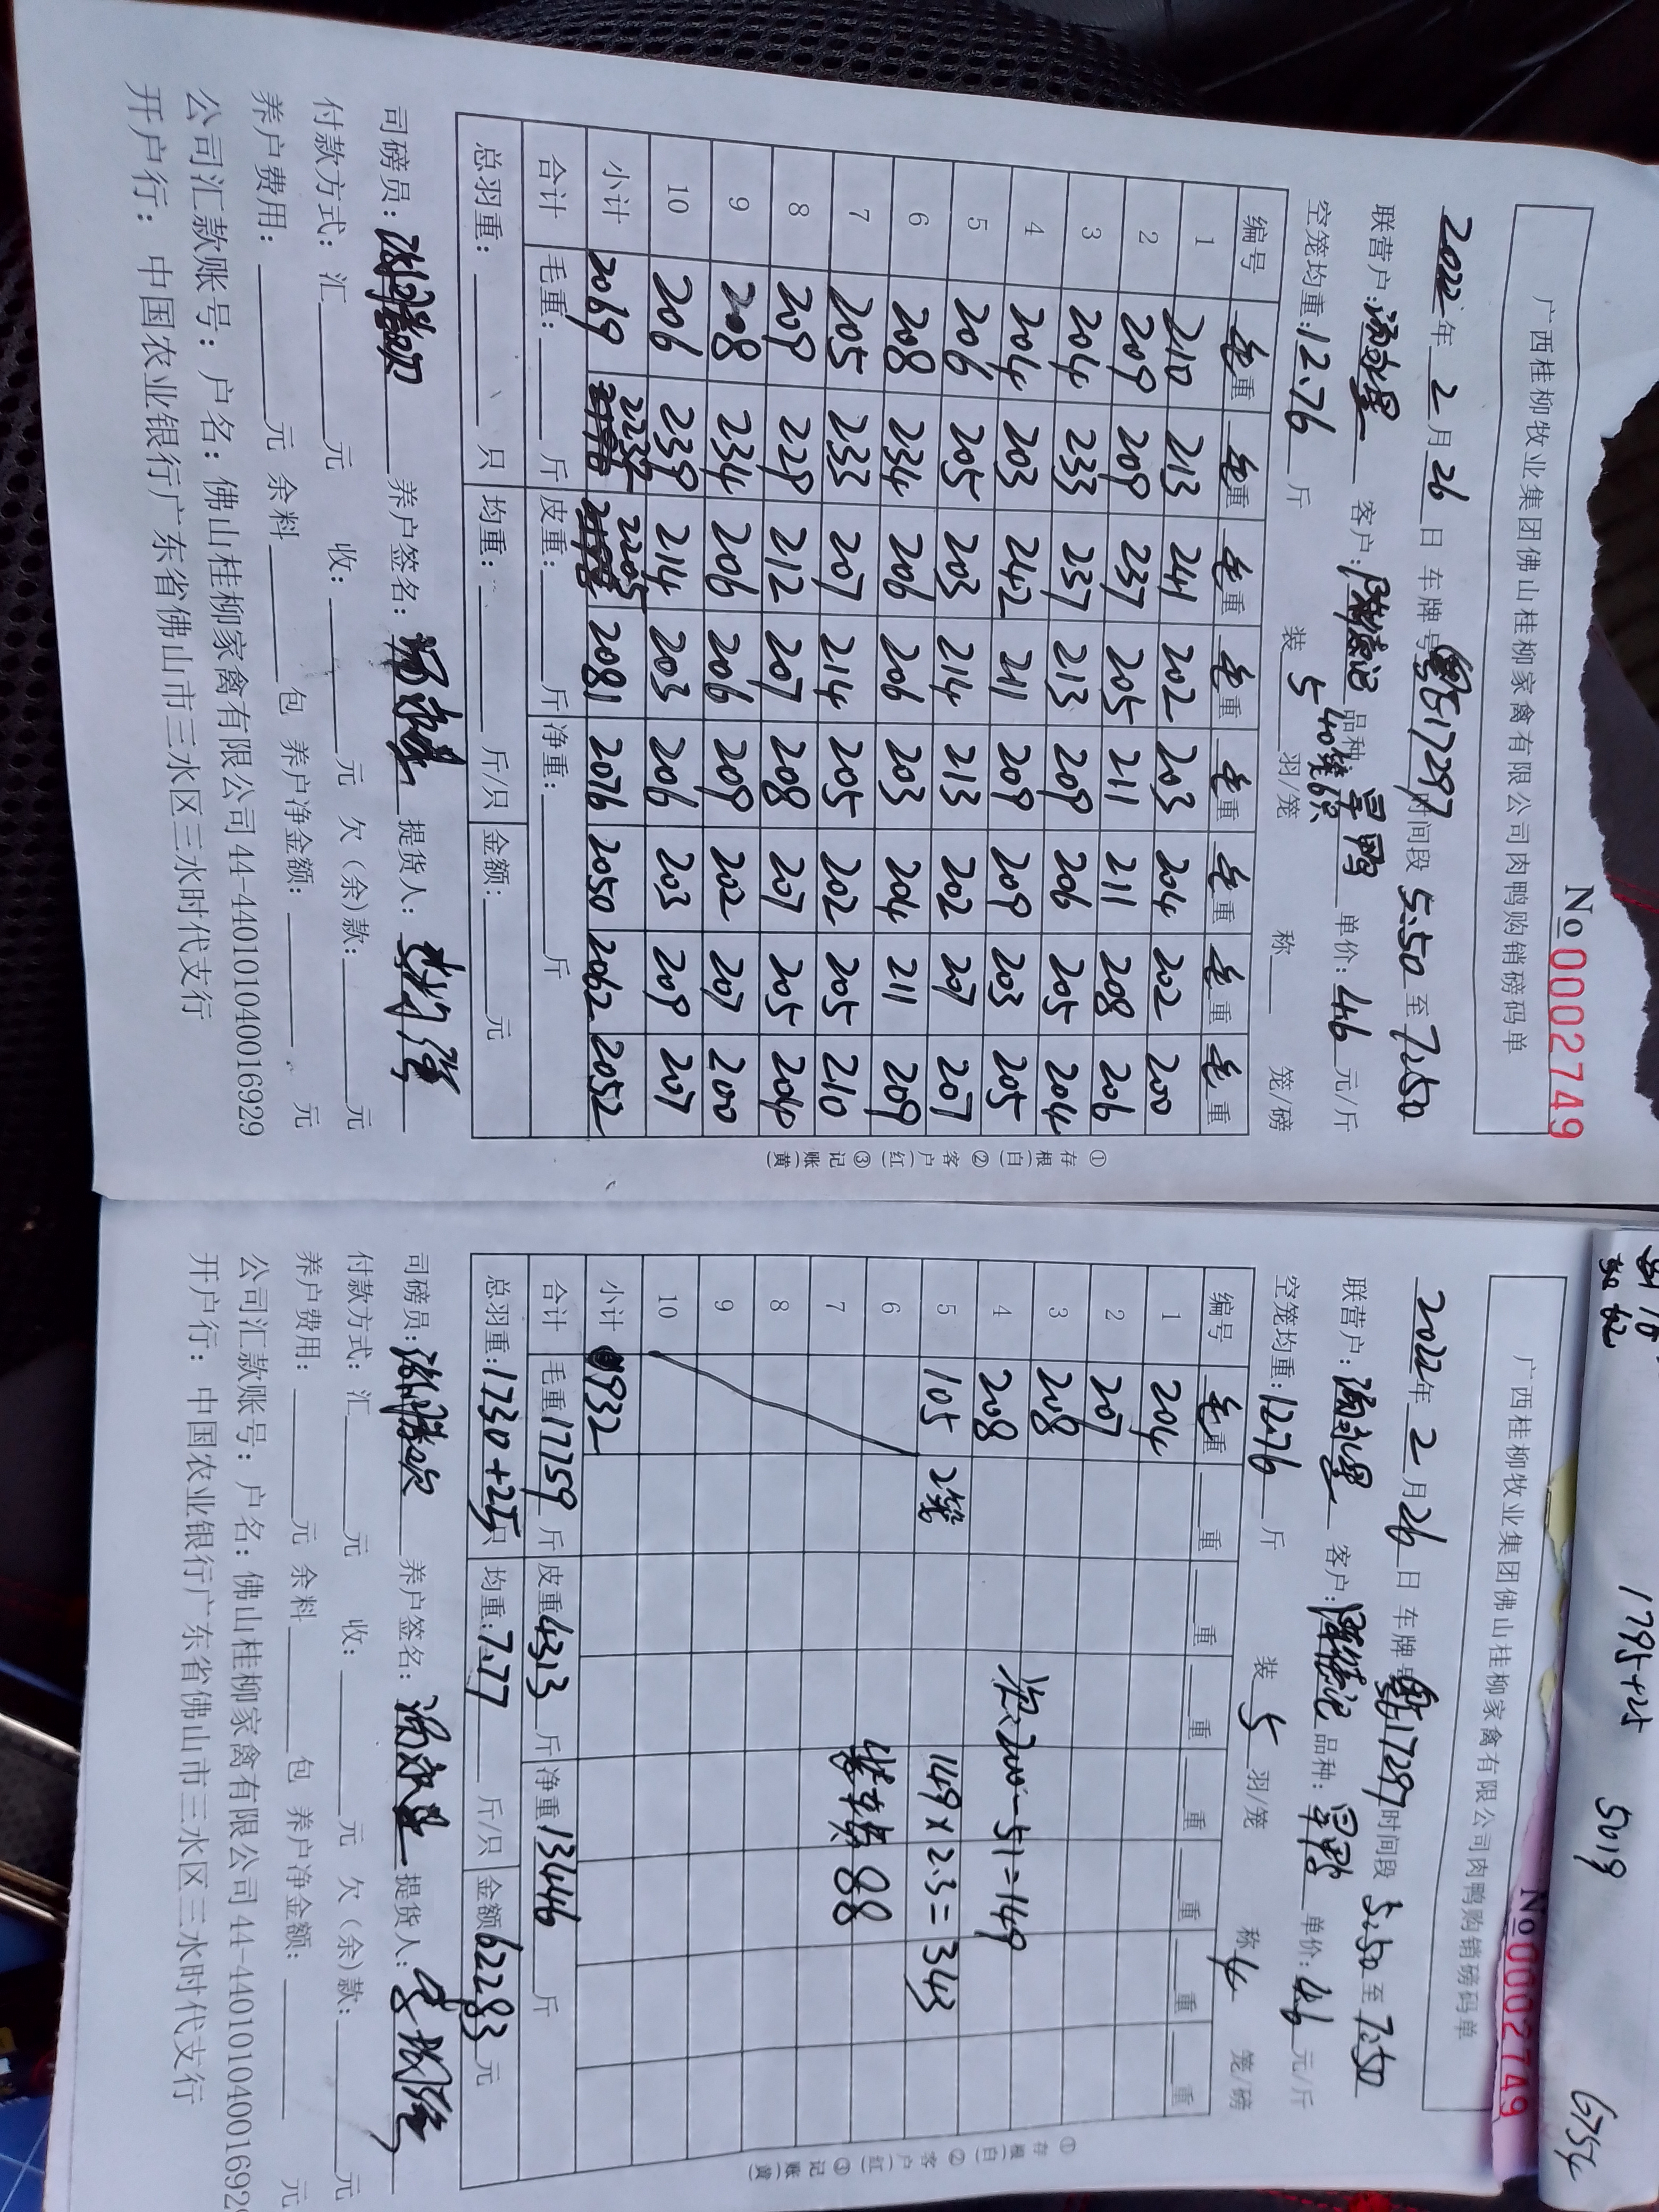 No 0002749
广西桂柳牧业集团佛山桂柳家禽有限公司肉鸭购销磅码单
2022年 2 月 26 日 车牌号 粤G17297 时间段 5:50 至 7:50
联营户: 客户: 品种: 旱鸭 单价: 4.6 元/斤
40笼
空笼均重: 12.76 斤 装 5 羽/笼 称 笼/磅
编号 毛重 毛重 毛重 毛重 毛重 毛重 毛重 毛重
1 210 213 241 202 203 204 202 200
2 209 209 237 205 211 211 208 206
3 204 233 237 213 209 206 205 204
4 204 203 242 211 209 209 203 205
5 206 205 203 214 213 202 207 207
6 208 234 206 206 203 204 211 209
7 205 233 207 214 205 202 205 210
8 209 229 212 207 208 207 205 204
9 208 234 206 206 209 202 207 200
10 206 239 214 203 206 203 209 207
小计 2069 2232 2205 2081 2076 2050 2062 2052
合计 毛重: 斤 皮重: 斤 净重: 斤
总羽重: 只 均重: 斤/只 金额: 元
司磅员: 养户签名: 提货人:
付款方式: 汇 元 收: 元 欠(余)款: 元
养户费用: 元 余料 包 养户净金额: 元
公司汇款账号: 户名: 佛山桂柳家禽有限公司 44-440101040016929
开户行: 中国农业银行广东省佛山市三水区三水时代支行
①存根(白) ②客户(红) ③记账(黄)
1795+25 5019 6754
No 0002749
广西桂柳牧业集团佛山桂柳家禽有限公司肉鸭购销磅码单
2022年 2 月 26 日 车牌号 粤G17297 时间段 5:50 至 7:50
联营户: 客户: 品种: 旱鸭 单价: 4.6 元/斤
空笼均重: 12.76 斤 装 5 羽/笼 称 4 笼/磅
编号 毛重 重 重 重 重 重 重 重
1 204
2 207
3 208
4 208 200-51=149
5 105 2笼 149×2.3=343
6 88
7
8
9
10
小计 932
合计 毛重 17759 斤 皮重 4313 斤 净重 13446 斤
总羽重: 1730+25 只 均重: 7.77 斤/只 金额 62283 元
司磅员: 养户签名: 提货人:
付款方式: 汇 元 收: 元 欠(余)款: 元
养户费用: 元 余料 包 养户净金额: 元
公司汇款账号: 户名: 佛山桂柳家禽有限公司 44-44010104001692
开户行: 中国农业银行广东省佛山市三水区三水时代支行
①存根(白) ②客户(红) ③记账(黄)